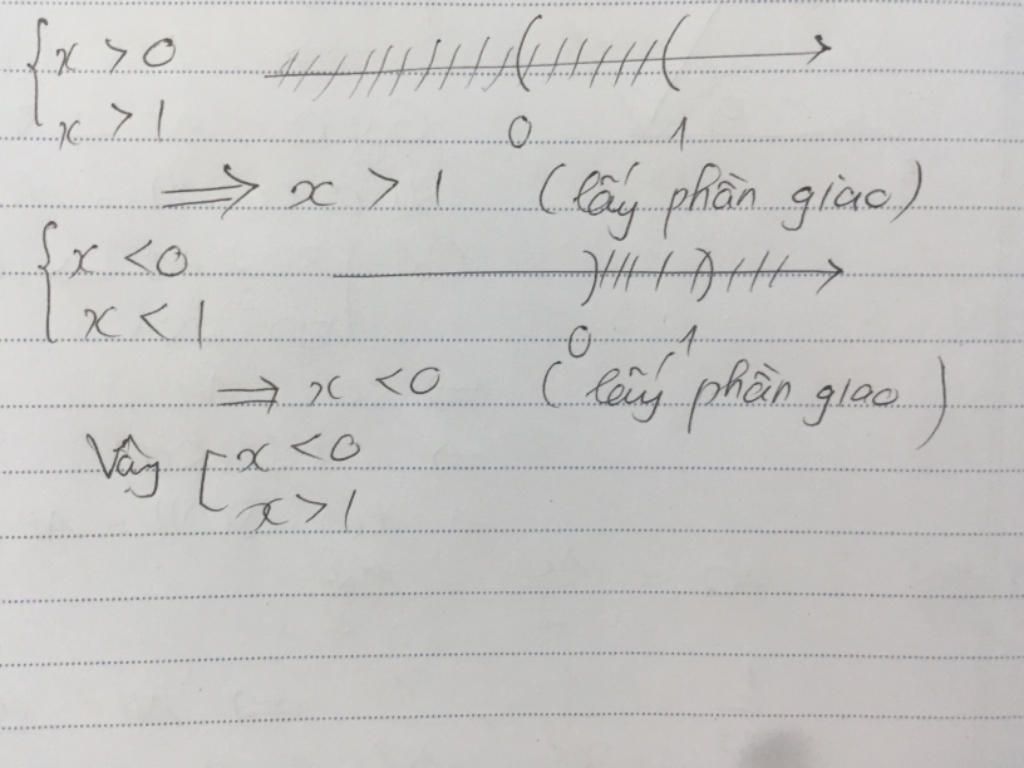 { x > 0
x > 1
0 1
⟹ x > 1 (lấy phần giao)
{ x < 0
x < 1
0 1
⟹ x < 0 (lấy phần giao)
Vây [ x < 0
x > 1